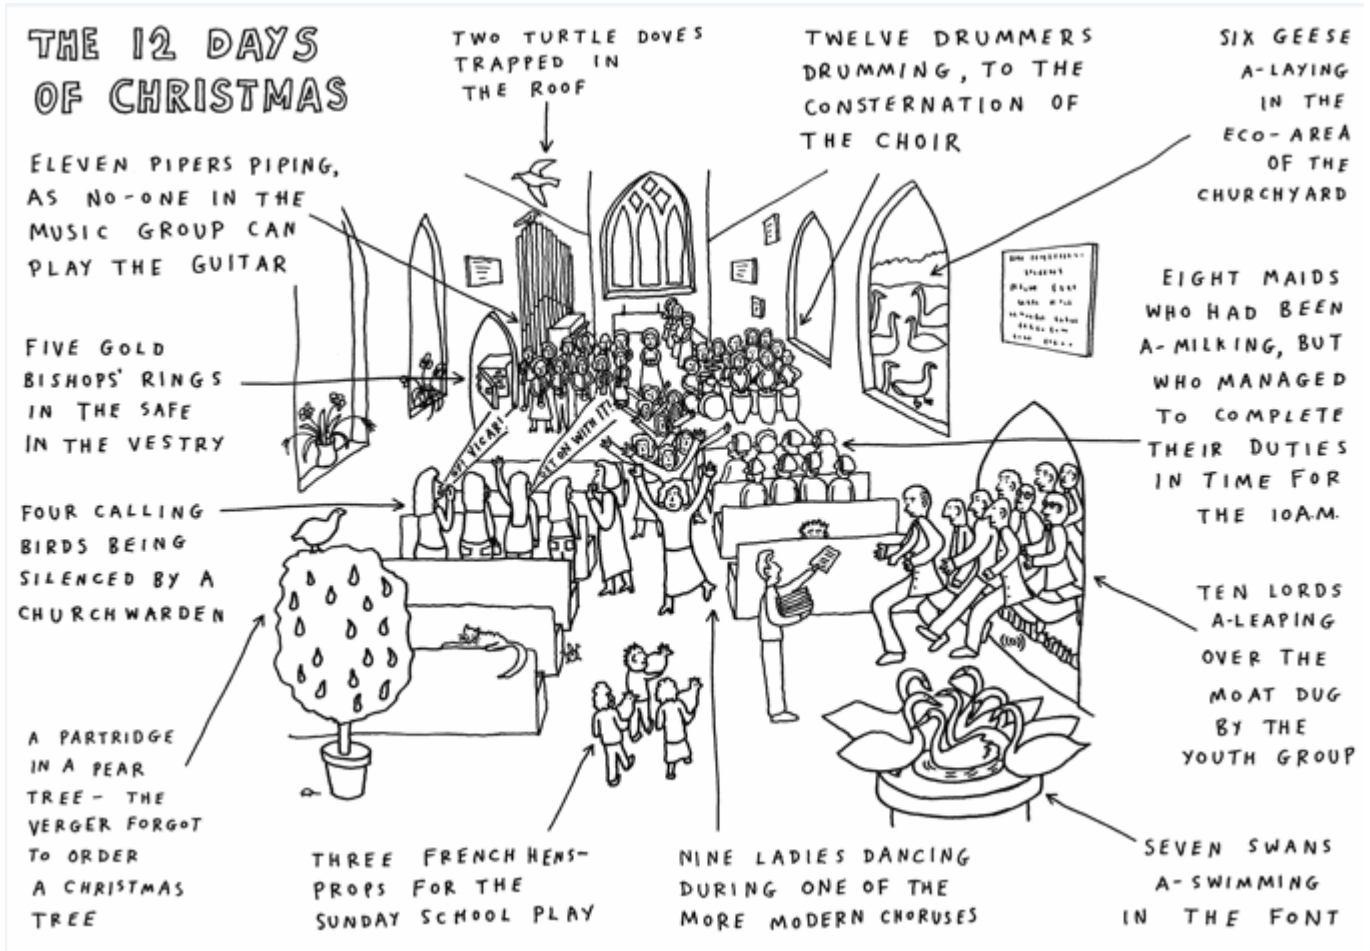 THE 12 DAYS
OF CHRISTMAS
TWO TURTLE DOVES
TRAPPED IN
THE ROOF
TWELVE DRUMMERS
DRUMMING, TO THE
CONSTERNATION OF
THE CHOIR
SIX GEESE
A-LAYING
IN THE
ECO-AREA
OF THE
CHURCHYARD
ELEVEN PIPERS PIPING,
AS NO-ONE IN THE
MUSIC GROUP CAN
PLAY THE GUITAR
EIGHT MAIDS
WHO HAD BEEN
A-MILKING, BUT
WHO MANAGED
TO COMPLETE
THEIR DUTIES
IN TIME FOR
THE 10A.M.
FIVE GOLD
BISHOPS' RINGS
IN THE SAFE
IN THE VESTRY
VICAR!
GET ON WITH IT!
FOUR CALLING
BIRDS BEING
SILENCED BY A
CHURCHWARDEN
TEN LORDS
A-LEAPING
OVER THE
MOAT DUG
BY THE
YOUTH GROUP
A PARTRIDGE
IN A PEAR
TREE- THE
VERGER FORGOT
TO ORDER
A CHRISTMAS
TREE
THREE FRENCH HENS-
PROPS FOR THE
SUNDAY SCHOOL PLAY
NINE LADIES DANCING
DURING ONE OF THE
MORE MODERN CHORUSES
SEVEN SWANS
A-SWIMMING
IN THE FONT